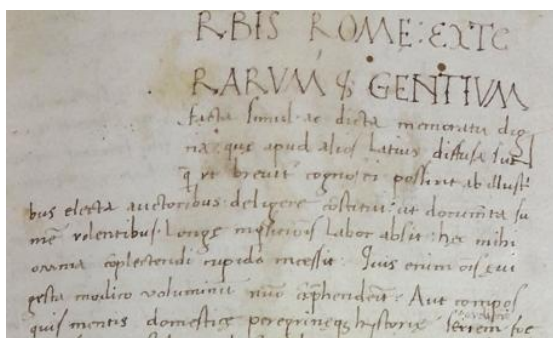 RBIS ROMĘ: EXTE
RARVM & GENTIVM
facta simul ac dicta memoratu dig
na: quę apud alios latius diffusa sut
q̄ ut breuit cognosci possint ab illustri
bus electa auctoribus deligere cōstitui: ut documēta su
mē uolentibus: longę īnqsicionis labor absit: nec mihi
omnia cōplectendi cupido incessit. Quis enim oīs eui
gesta modico uoluminū nūo cōprehenderit: Aut compos
quis mentis domesticę peregrineq; hystorię seriem